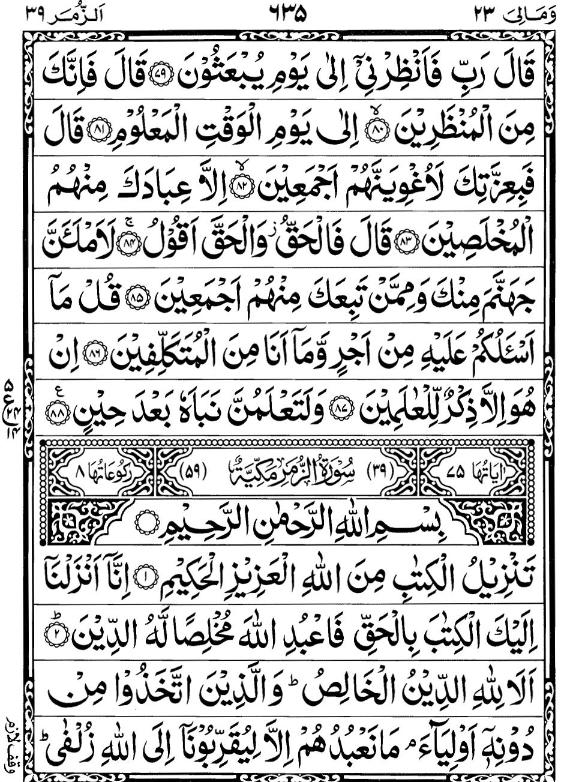 وَمَالِىَ ٢٣ ٦٣٥ اَلزُّمَر ٣٩
قَالَ رَبِّ فَاَنْظِرْنِىْۤ اِلٰى يَوْمِ يُبْعَثُوْنَ ﴿٧٩﴾ قَالَ فَاِنَّكَ
مِنَ الْمُنْظَرِيْنَ ﴿٨٠﴾ۙ اِلٰى يَوْمِ الْوَقْتِ الْمَعْلُوْمِ ﴿٨١﴾ قَالَ
فَبِعِزَّتِكَ لَاُغْوِيَنَّهُمْ اَجْمَعِيْنَ ﴿٨٢﴾ۙ اِلَّا عِبَادَكَ مِنْهُمُ
الْمُخْلَصِيْنَ ﴿٨٣﴾ قَالَ فَالْحَقُّ ز وَالْحَقَّ اَقُوْلُ ﴿٨٤﴾ۚ لَاَمْلَـَٔنَّ
جَهَنَّمَ مِنْكَ وَمِمَّنْ تَبِعَكَ مِنْهُمْ اَجْمَعِيْنَ ﴿٨٥﴾ قُلْ مَاۤ
اَسْـَٔلُكُمْ عَلَيْهِ مِنْ اَجْرٍ وَّمَاۤ اَنَا مِنَ الْمُتَكَلِّفِيْنَ ﴿٨٦﴾ اِنْ
هُوَ اِلَّا ذِكْرٌ لِّلْعٰلَمِيْنَ ﴿٨٧﴾ وَلَتَعْلَمُنَّ نَبَاَهٗ بَعْدَ حِيْنٍ ﴿٨٨﴾ ع
ع ٥ ٢٤ ١٤
اٰيَاتُهَا ٧٥ (٣٩) سُوْرَةُ الزُّمَرِ مَكِّيَّةٌ (٥٩) رُكُوْعَاتُهَا ٨
بِسْمِ اللّٰهِ الرَّحْمٰنِ الرَّحِيْمِ
تَنْزِيْلُ الْكِتٰبِ مِنَ اللّٰهِ الْعَزِيْزِ الْحَكِيْمِ ﴿١﴾ اِنَّاۤ اَنْزَلْنَاۤ
اِلَيْكَ الْكِتٰبَ بِالْحَقِّ فَاعْبُدِ اللّٰهَ مُخْلِصًا لَّهُ الدِّيْنَ ﴿٢﴾ؕ
اَلَا لِلّٰهِ الدِّيْنُ الْخَالِصُ ؕ وَالَّذِيْنَ اتَّخَذُوْا مِنْ
دُوْنِهٖۤ اَوْلِيَآءَ ۘ مَا نَعْبُدُهُمْ اِلَّا لِيُقَرِّبُوْنَاۤ اِلَى اللّٰهِ زُلْفٰى ؕ
وقف لازم